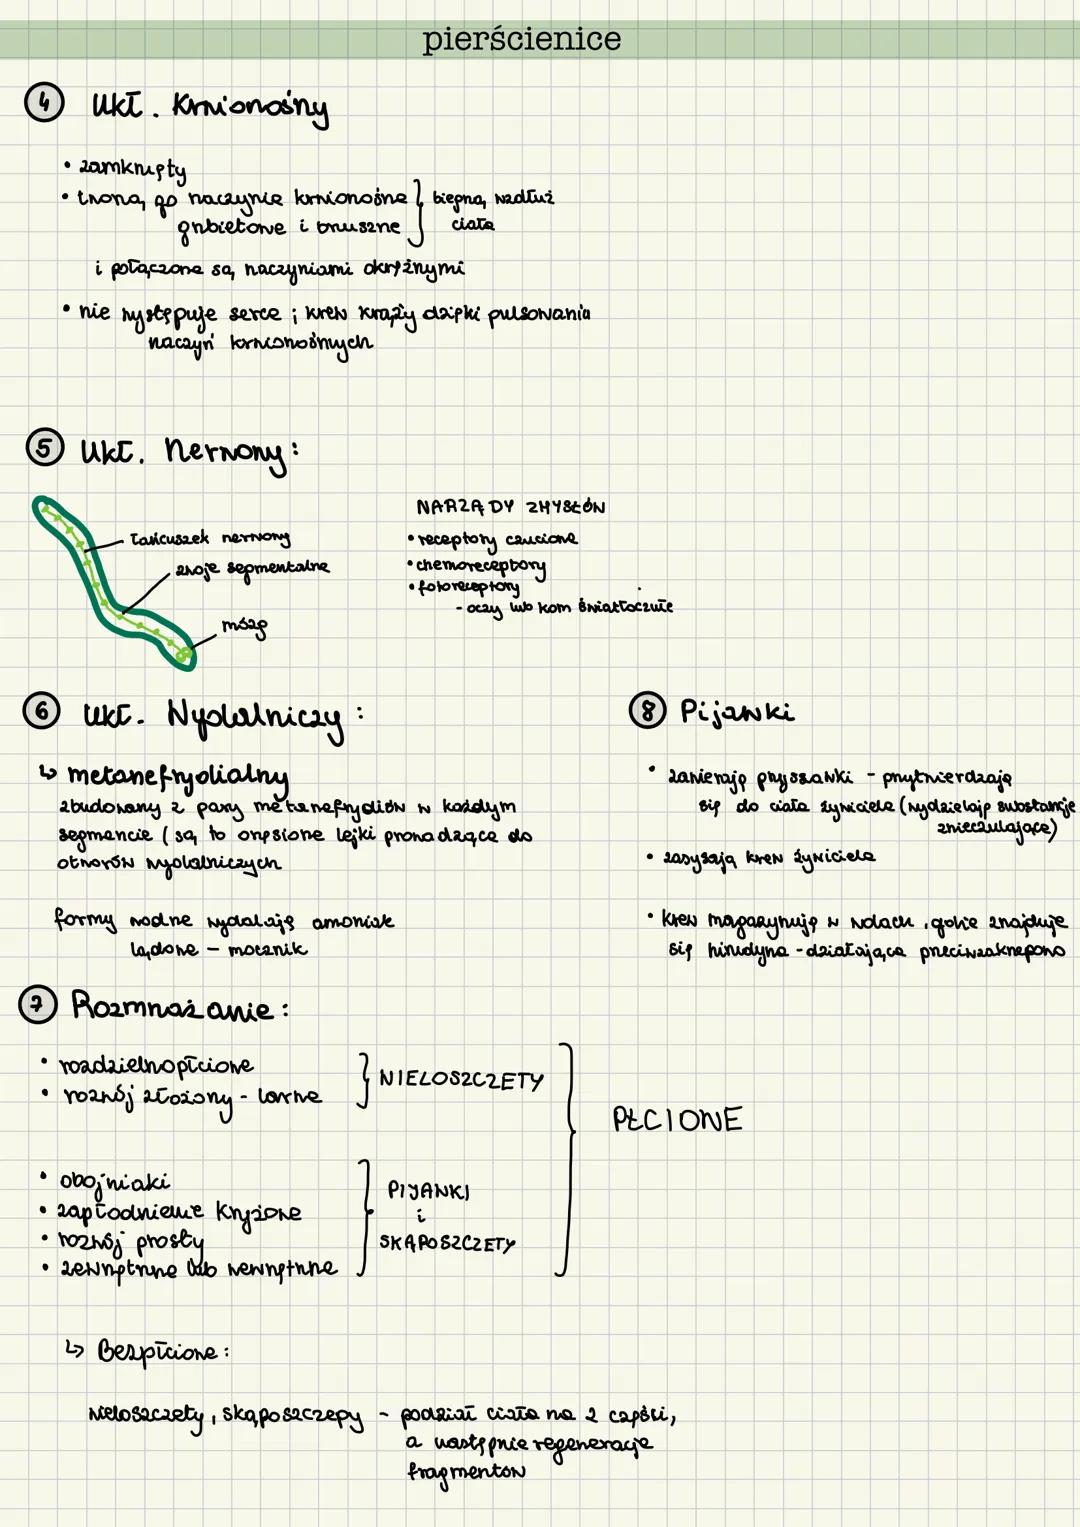 pierścienice
4 Ukł. Krwionośny
• zamknięty
• tworzą go naczynie krwionośne } biegną wzdłuż
grzbietowe i brzuszne ciała
i połączone są naczyniami okrężnymi
• nie występuje serce ; krew krąży dzięki pulsowania
naczyń krwionośnych
5 Ukł. Nerwowy:
łańcuszek nerwowy
zwoje segmentalne
mózg
NARZĄDY ZMYSŁÓW
• receptory czuciowe
• chemoreceptory
• fotoreceptory
- oczy lub kom światłoczułe
6 Ukł. Wydalniczy:
↳ metanefrydialny
zbudowany z pary metanefrydiów w każdym
segmencie (są to orzęsione lejki prowadzące do
otworów wydalniczych
formy wodne wydalają amoniak
lądowe – mocznik
8 Pijawki
• zawierają przyssawki - przytwierdzają
się do ciała żywiciela (wydzielają substancje
znieczulające)
• zasysają krew żywiciela
• krew magazynują w wolach, gdzie znajduje
się hirudyna - działająca przeciwzakrzepowo
7 Rozmnażanie:
• rozdzielnopłciowe
• rozwój złożony - larwa
} NIELOSZCZETY
• obojniaki
• zapłodnienie krzyżowe
• rozwój prosty
• zewnętrzne lub wewnętrzne
PIJAWKI
i
SKĄPOSZCZETY
PŁCIOWE
↳ Bezpłciowe:
wieloszczety, skąposzczepy - podział ciała na 2 części,
a następnie regeneracje
fragmentów